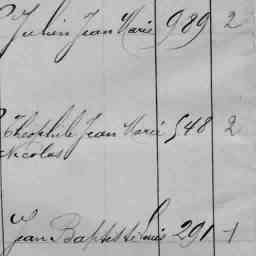 Julien Jean Marie 989 2
Théophile Jean Marie 548 2
Nicolas
Jean Baptiste Louis 291 1